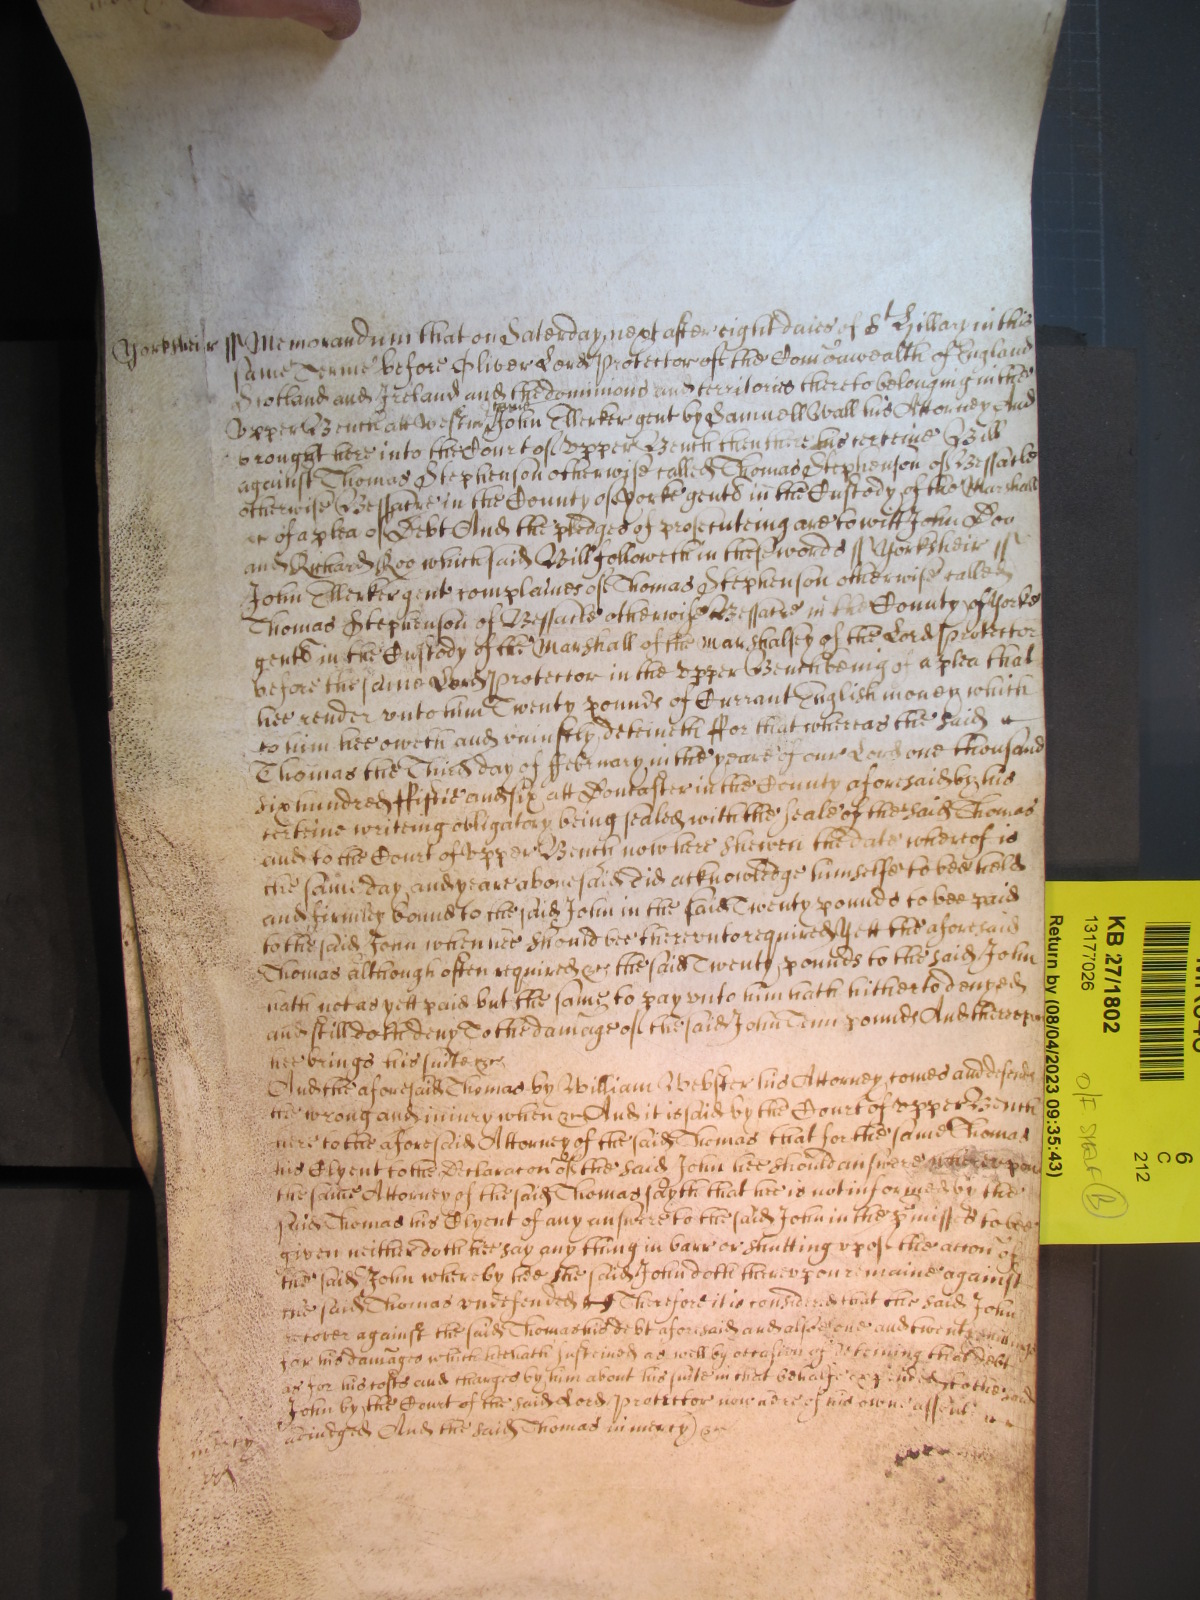 Yorksheir // Memorandum that on Saterday next after eight daies of St Hillary in this
same Terme before Oliver Lord Protector of the Comonwealth of England
Scotland and Ireland and the dominions and territories thereto belonging in the
Vpper Bench att Westmr came John Merker gent by Samuell Wall his Attorney And
brought here into the Court of Vpper Bench then there his certeine Bill
against Thomas Stephenson otherwise called Thomas Stephenson of Bessacle
otherwise Bessacre in the County of Yorke gent in the Custody of the Marshall
&c of a plea of Debt And the pledges of prosecuteing are to witt John Doo
and Richard Roo which said Bill followeth in these words // Yorksheir //
John Merker gent complaines of Thomas Stephenson otherwise called
Thomas Stephenson of Bessacle otherwise Bessacre in the County of Yorke
gent in the Custody of the Marshall of the Marshalsey of the Lord Protector
before the same Lord Protector in the Vpper Bench being of a plea that
hee render vnto him Twenty pounds of Currant English money which
to him hee oweth and vniustly deteineth ffor that whereas the said
Thomas the Third day of ffebruary in the yeare of our Lord one thousand
six hundred ffiftie and six att Doncaster in the County aforesaid by his
certeine writeing obligatory being sealed with the seale of the said Thomas
and to the Court of Vpper Bench now here shewen the date whereof is
the same day and yeare abovesaid did acknowledge himselfe to bee held
and firmley bound to the said John in the said Twenty pounds to bee paid
to the said John when hee should bee therevnto required Yett the aforesaid
Thomas although often required &c the said Twenty pounds to the said John
hath not as yett paid but the same to pay vnto him hath hitherto denyed
and still doth deny To the damage of the said John Tenn pounds And therevpon
hee brings his suite &c
And the aforesaid Thomas by William Webster his Attorney comes and defends
the wrong and iniury when &c And it is said by the Court of Vpper Bench
here to the aforesaid Attorney of the said Thomas that for the same Thomas
his Clyent to the Declaracon of the said John hee should answere wherevpon
the same Attorney of the said Thomas sayth that hee is not informed by the
said Thomas his Clyent of any answere to the said John in the pmisses to bee
given neither doth hee say any thing in barr or shutting vp of the accon of
the said John whereby hee the said John doth therevpon remaine against
the said Thomas vndefended &c Therefore it is considered that the said John
recover against the said Thomas his debt aforesaid and alsoe one and twenty
for his damages which hee hath susteined as well by occasion of deteining that debt
as for his costs and charges by him about his suite in that behalfe expended to the said
John by the Court of the said Lord Protector now here of his owne assent
adiudged And the said Thomas in mercy &c
mercy
KB 27/1802
13177026
Return by (08/04/2023 09:35:43)
6
C
212